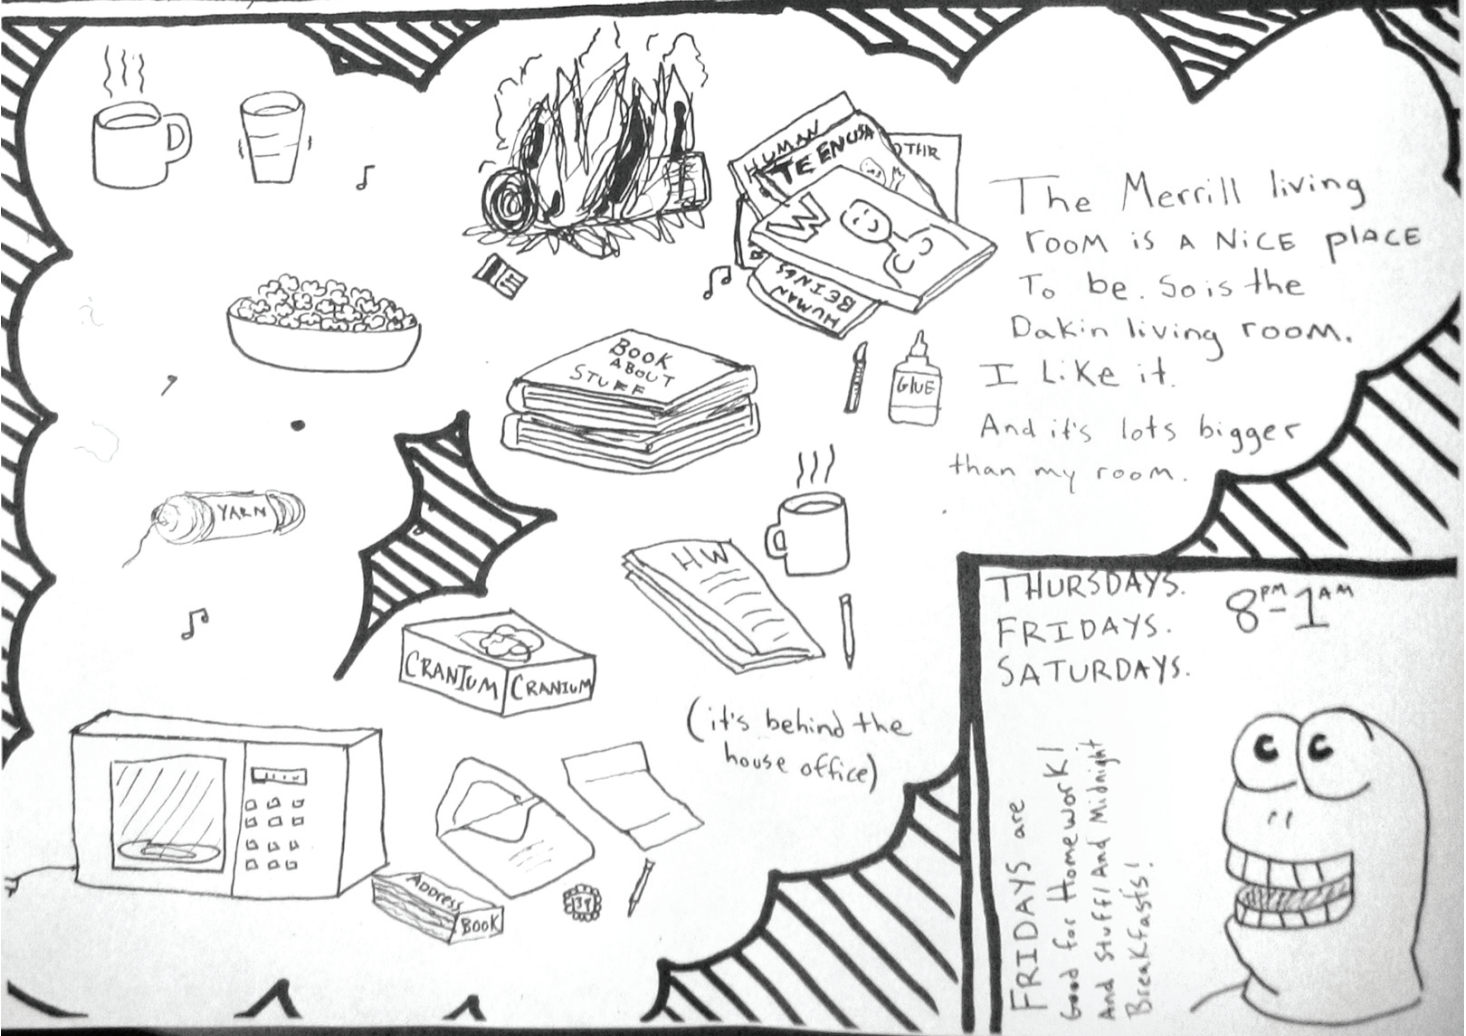 HUMAN
TEENUSA
OTHR
W
HUMAN
BEINGS
The Merrill living
room is A NiCE plACE
To be. So is the
Dakin living room.
I Like it.
And it's lots bigger
than my room.
BOOK
ABOUT
STUFF
GLUE
YARN
HW
CRANIUM
CRANIUM
(it's behind the
house office)
ADDRESS
BOOK
39
THURSDAYS.
FRIDAYS.
SATURDAYS.
8PM-1AM
FRIDAYS are
Good for Homework!
And Stuff! And Midnight
Breakfasts!